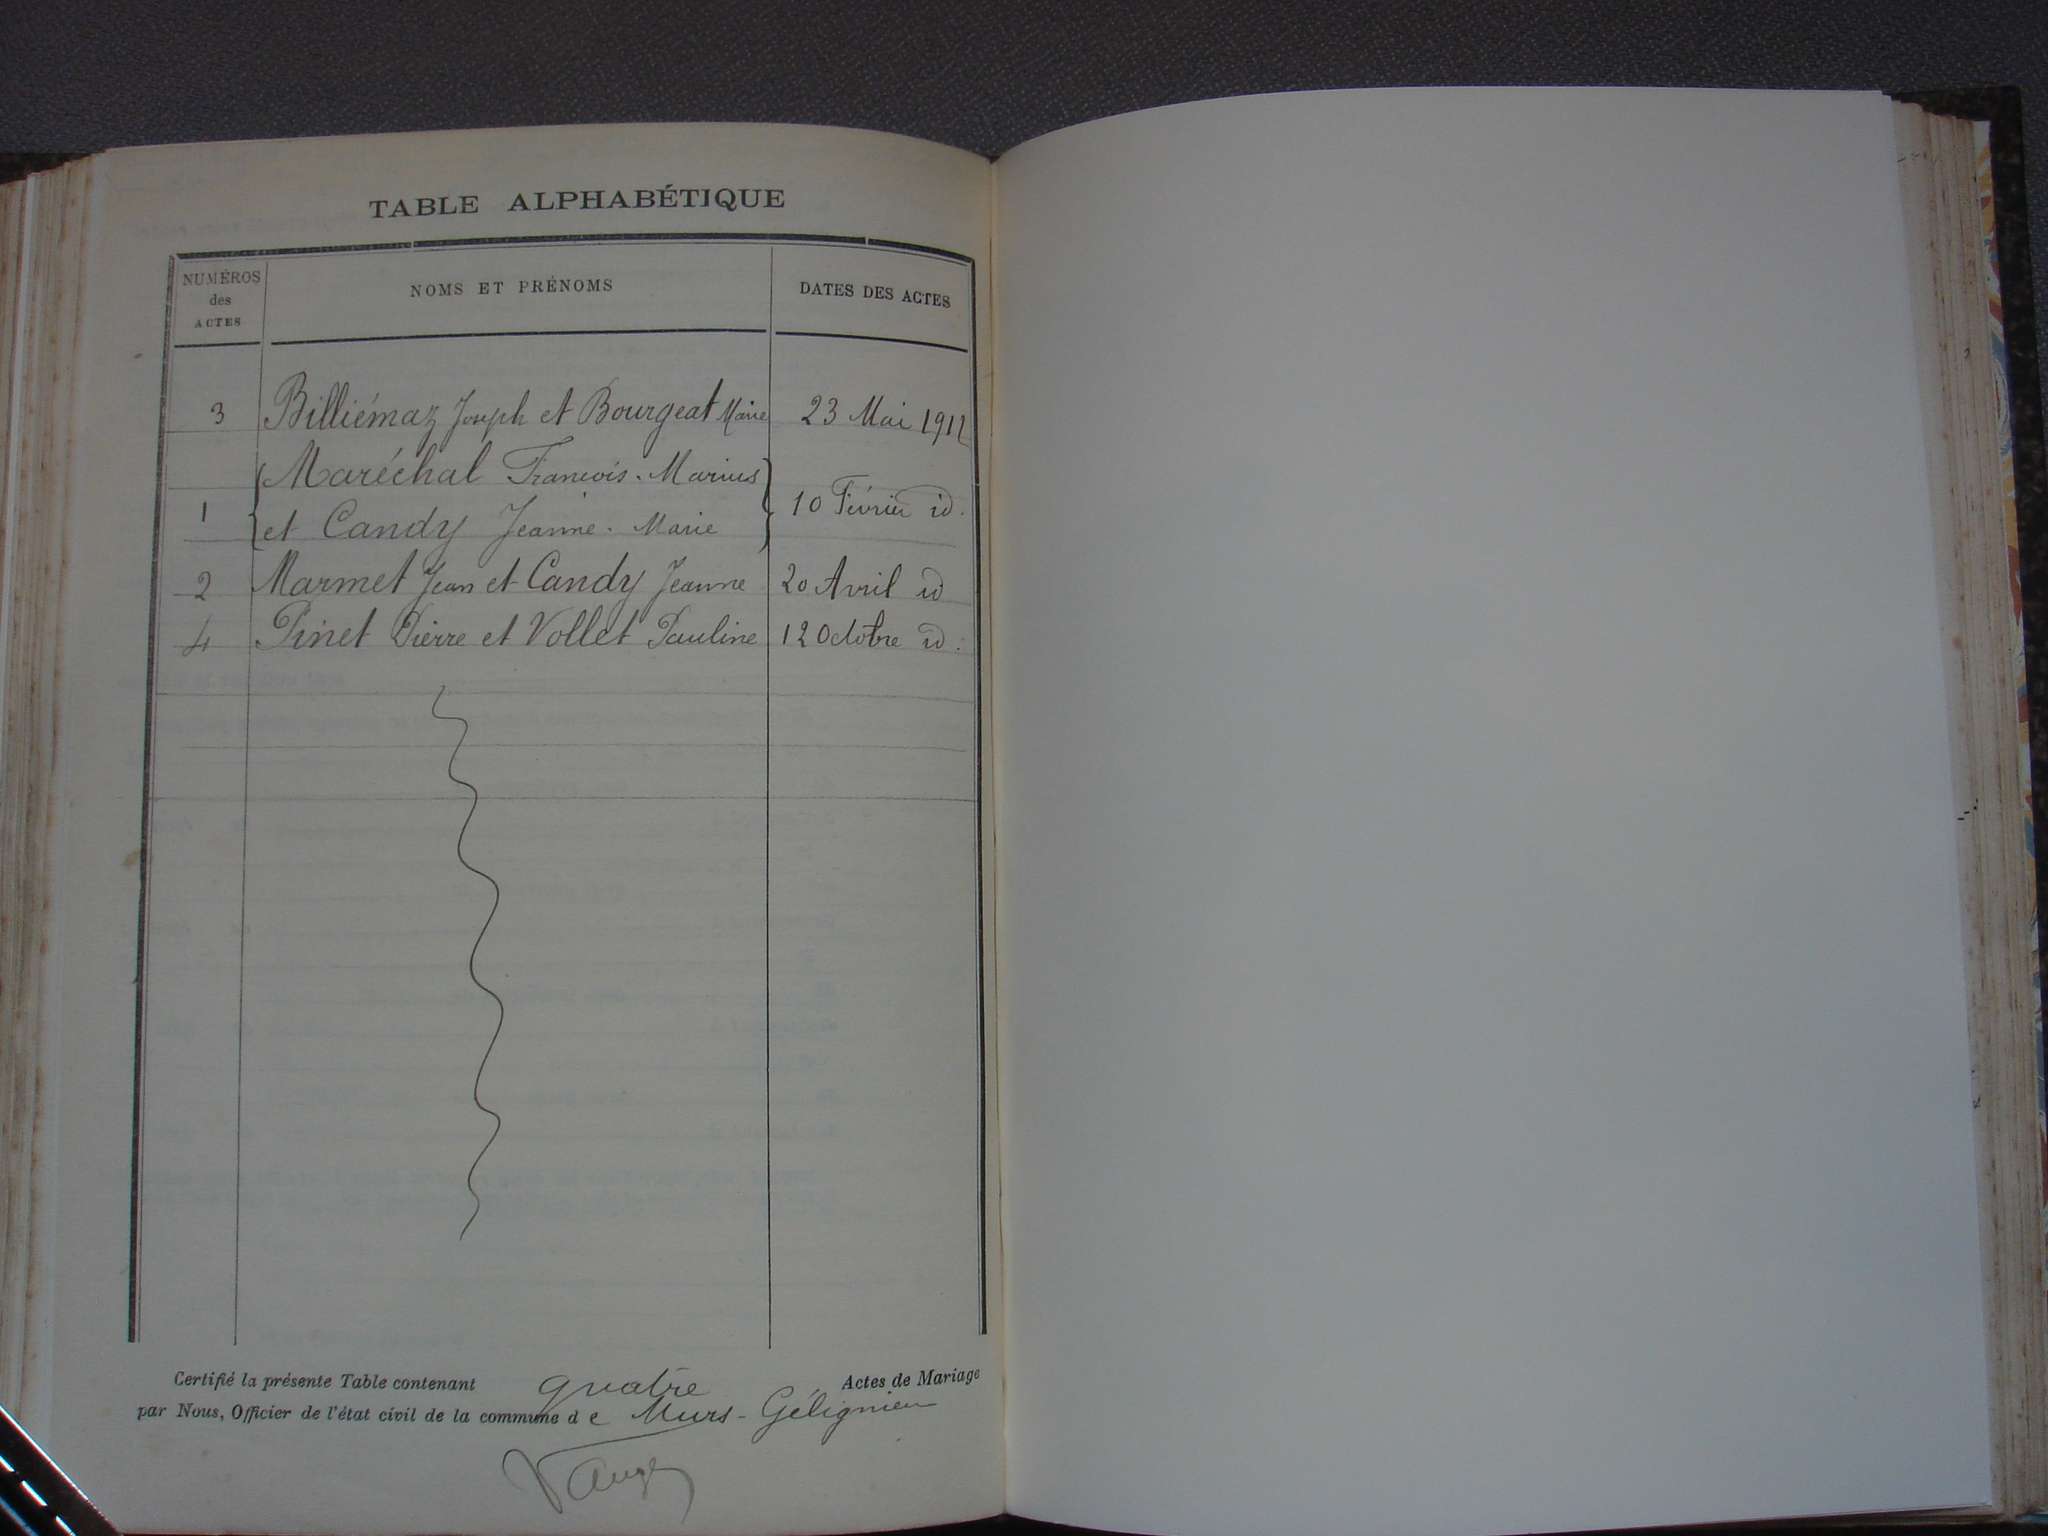 TABLE ALPHABÉTIQUE
NUMÉROS des ACTES
NOMS ET PRÉNOMS
DATES DES ACTES
3 Billiémaz Joseph et Bourgeat Marie 23 Mai 1911
Maréchal François-Marius
1 et Candy Jeanne-Marie 10 Février id.
2 Marmet Jean et Candy Jeanne 20 Avril id
4 Pinet Pierre et Vollet Pauline 12 Octobre id.
Certifié la présente Table contenant quatre Actes de Mariage
par Nous, Officier de l'état civil de la commune de Murs-Gélignieu